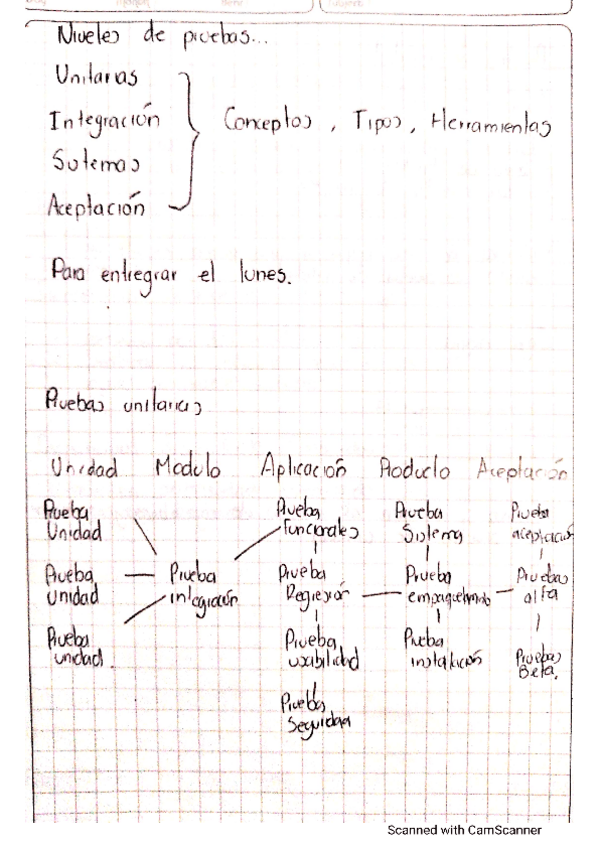 Niveles de pruebas...
Unitarias
Integración
Sistemas
Aceptación
Conceptos, Tipos, Herramientas
Para entregrar el lunes.
Pruebas unitarias
Unidad Modulo Aplicación Producto Aceptación
Prueba Unidad
Prueba unidad
Prueba unidad.
Prueba integración
Prueba funcionales
Prueba Regresión
Prueba usabilidad
Prueba Seguridad
Prueba Sistema
Prueba empaquetando
Prueba instalación
Prueba aceptación
Pruebas alfa
Pruebas Beta.
Scanned with CamScanner